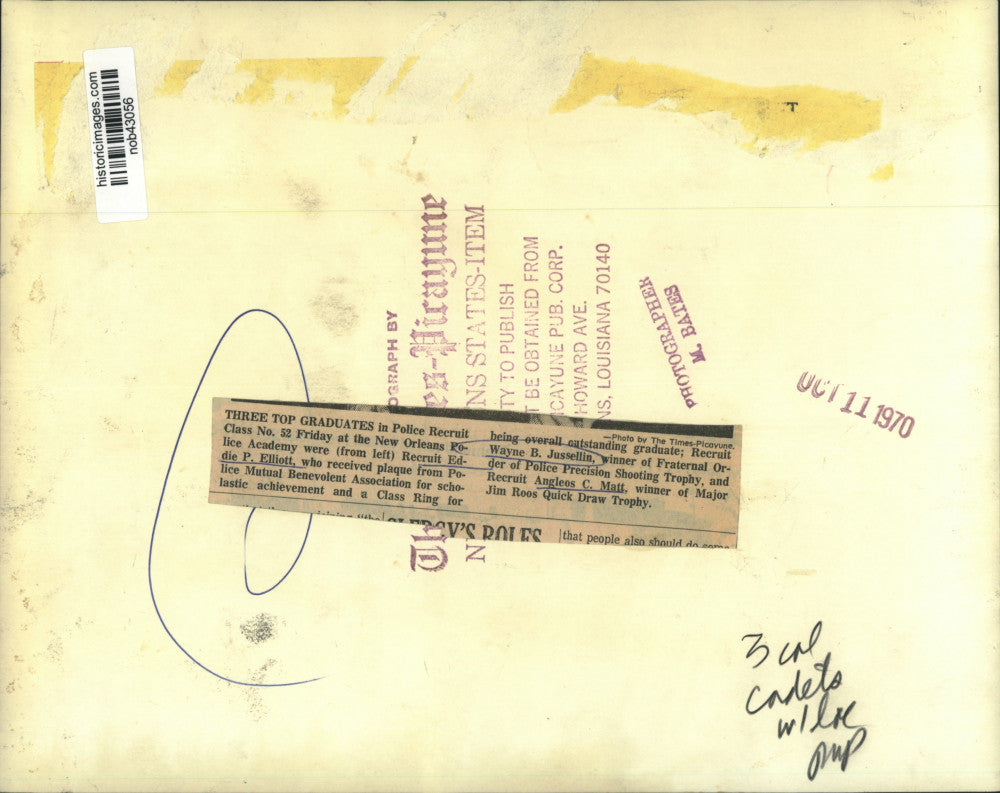 historicimages.com
nob43056
T
OGRAPH BY
es-Picayune
NS STATES-ITEM
TY TO PUBLISH
T BE OBTAINED FROM
CAYUNE PUB. CORP.
HOWARD AVE.
NS, LOUISIANA 70140
Th
N
PHOTOGRAPHER
M. BATES
OCT 11 1970
THREE TOP GRADUATES in Police Recruit
Class No. 52 Friday at the New Orleans Po-
lice Academy were (from left) Recruit Ed-
die P. Elliott, who received plaque from Po-
lice Mutual Benevolent Association for scho-
lastic achievement and a Class Ring for
—Photo by The Times-Picayune.
being overall outstanding graduate; Recruit
Wayne B. Jussellin, winner of Fraternal Or-
der of Police Precision Shooting Trophy, and
Recruit Angleos C. Matt, winner of Major
Jim Roos Quick Draw Trophy.
CLERGY'S ROLES
that people also should do some
3 col
cadets